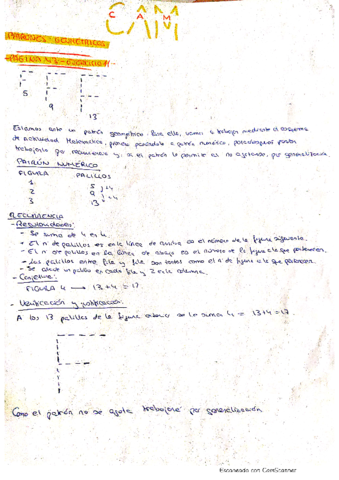 CAM
PATRONES GEOMÉTRICOS
PÁGINA Nº3 - EJERCICIO 11
5
9
13
Estamos ante un patrón geométrico. Para ello, vamos a trabajar mediante el
de actividad Matemática, primero pasándolo a patrón numérico, para después poder
trabajarlo por recurrencia y, si el patrón lo permite al no agotarse, por generalización.
PATRÓN NUMÉRICO
FIGURA PALILLOS
1 5
2 9 +4
3 13 +4
RECURRENCIA
- Regularidades:
- Se suma de 4 en 4.
- El n de palillos en la línea de arriba es el número de la figura siguiente.
- El n de palillos en la línea de abajo es el número de la figura a la que pertenecen.
- Los palillos entre fila y fila son tantos como el n de figura a la que pertenecen.
- Se añade un palillo en cada fila y 2 en la columna.
- Conjetura:
FIGURA 4 → 13+4 = 17
- Verificación y justificación:
A los 13 palillos de la figura anterior se le suma 4 = 13+4 = 17.
Como el patrón no se agota trabajaré por generalización
Escaneado con CamScanner